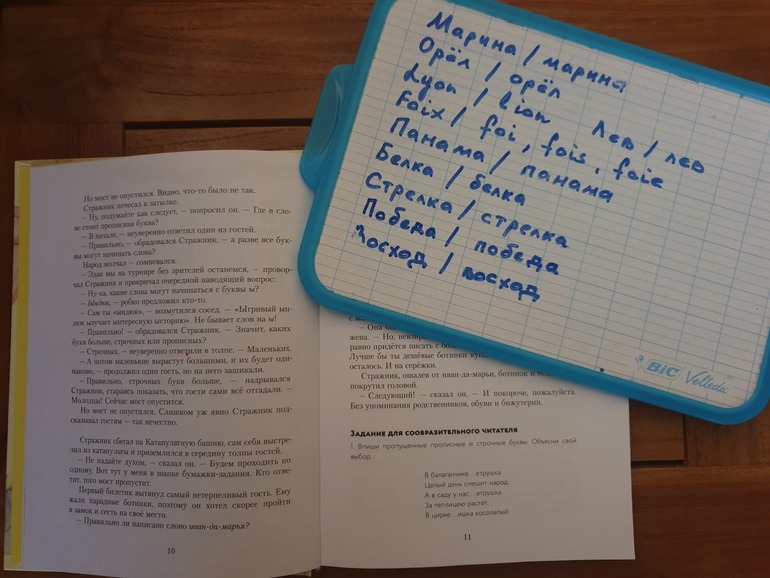 Марина / марина
Орёл / орёл
Lyon / lion Лев / лев
Foix / foi, fois, foie
Панама / панама
Белка / белка
Стрелка / стрелка
Победа / победа
Восход / восход
BIC Velleda
Но мост не опустился. Видно, что-то было не так.
Стражник почесал в затылке.
— Ну, подумайте как следует, — попросил он. — Где в сло-
ве стоит прописная буква?
— В начале, — неуверенно ответил один из гостей.
— Правильно, — обрадовался Стражник, — а разве все бук-
вы могут начинать слова?
Народ молчал — сомневался.
— Эдак мы на турнире без зрителей останемся, — проворч-
чал Стражник и прокричал очередной наводящий вопрос:
— Ну-ка, какие слова могут начинаться с буквы ы?
— Ындюк, — робко предложил кто-то.
— Сам ты «ындюк», — возмутился сосед. — «Ыгривый ын-
дюк ызучает ынтересную ысторию». Не бывает слов на ы!
— Правильно! — обрадовался Стражник. — Значит, каких
букв больше, строчных или прописных?
— Строчных, — неуверенно ответили в толпе. — Маленьких.
— А потом маленькие вырастут большими, и их будет оди-
наково, — продолжил один гость, но на него зашикали.
— Правильно, строчных букв больше, — надрывался
Стражник, стараясь показать, что гости сами всё отгадали. —
Молодцы! Сейчас мост опустится.
Но мост не опустился. Слишком уж явно Стражник под-
сказывал гостям — так нечестно.
Стражник сбегал на Катапультную башню, сам себя выстре-
лил из катапульты и приземлился в середину толпы гостей.
— Не падайте духом, — сказал он. — Будем проходить по
одному. Вот тут у меня в шапке бумажки-задания. Кто отве-
тит, того мост пропустит.
Первый билетик вытянул самый нетерпеливый гость. Ему
жали парадные ботинки, поэтому он хотел скорее пройти
в замок и сесть на своё место.
— Правильно ли написано слово иван-да-марья?
10
— Она бо
жена. — Но, неизвр
равно придётся писать с бо
Лучше бы ты дешёвые ботинки куп
осталось. И на серёжки.
Стражник, ошалев от иван-да-марьи, ботинок и
покрутил головой.
— Следующий! — сказал он. — И покороче, пожалуйста.
Без упоминания родственников, обуви и бижутерии.
Задание для сообразительного читателя
1. Впиши пропущенные прописные и строчные буквы. Объясни свой
выбор.
В балаганчике ...етрушка
Целый день смешит народ.
А в саду у нас ...етрушка
За теплицею растёт.
В цирке ...ишка косолапый
11